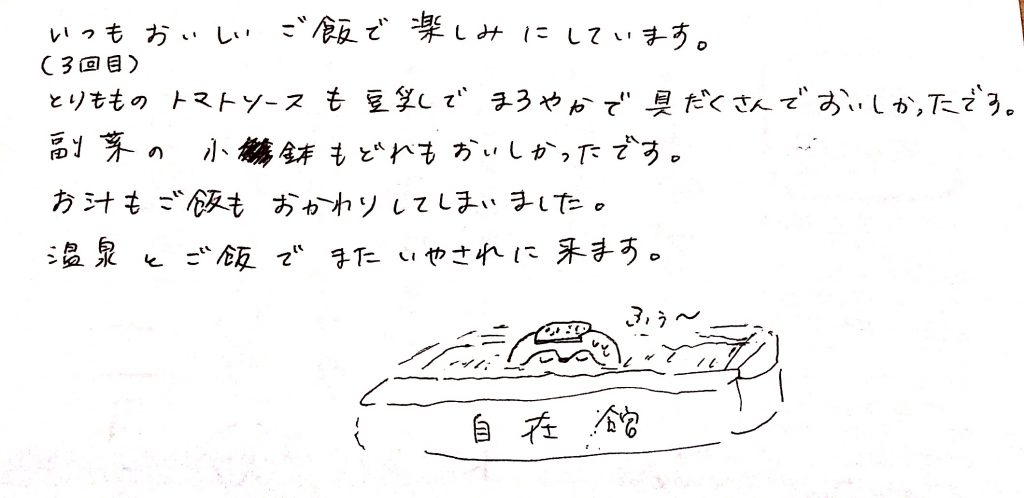 いつもおいしいご飯で楽しみにしています。
(3回目)
とりもものトマトソースも豆乳しでまろやかで具だくさんでおいしかったです。
副菜の小鉢もどれもおいしかったです。
お汁もご飯もおかわりしてしまいました。
温泉とご飯でまたいやされに来ます。
ふぅ〜
自在館